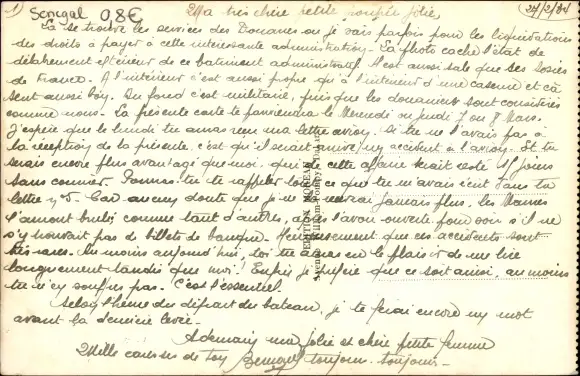 1 Senegal 0,8€ Ma très chère petite poupée jolie, 27/2/34
Là se trouve les services des Douanes où je vais parfois pour les liquidations
des droits à payer à cette intéressante administration. La photo cache l'état de
délabrement extérieur de ce batiment administratif. Il est aussi sale que ses sosies
de France. A l'intérieur c'est aussi propre qu'à l'intérieur d'une caserne et ça
sent aussi bon. Au fond c'est militaire, puisque les douaniers sont considérés
comme nous. La présente carte te parviendra le Mercredi ou jeudi 7 ou 8 Mars.
J'espère que le lundi tu auras reçu ma lettre avion. Si tu ne l'avais pas à
la réception de la présente c'est qu'il serait arrivé un accident à l'avion. Et tu
serais encore plus avantagé que moi qui de cette affaire serait resté 15 jours
sans courrier. Pourras-tu te rappeler tout ce que tu m'avais écrit dans ta
lettre n°5. Car aucun doute que je ne la verrai jamais plus, les Maures
l'auront brulé comme tant d'autres, après l'avoir ouverte pour voir s'il ne
s'y trouvait pas de billets de banque. Heureusement que ces accidents sont
très rares. Au moins aujourd'hui, toi tu auras eu le plaisir de me lire
longuement tandis que moi! Enfin je préfère que ce soit ainsi, au moins
tu n'en souffres pas. C'est l'essentiel.
Selon l'heure du départ du bateau, je te ferai encore un mot
avant la dernière levée.
A demain ma jolie et chère petite femme
Mille caresses de ton toujours toujours